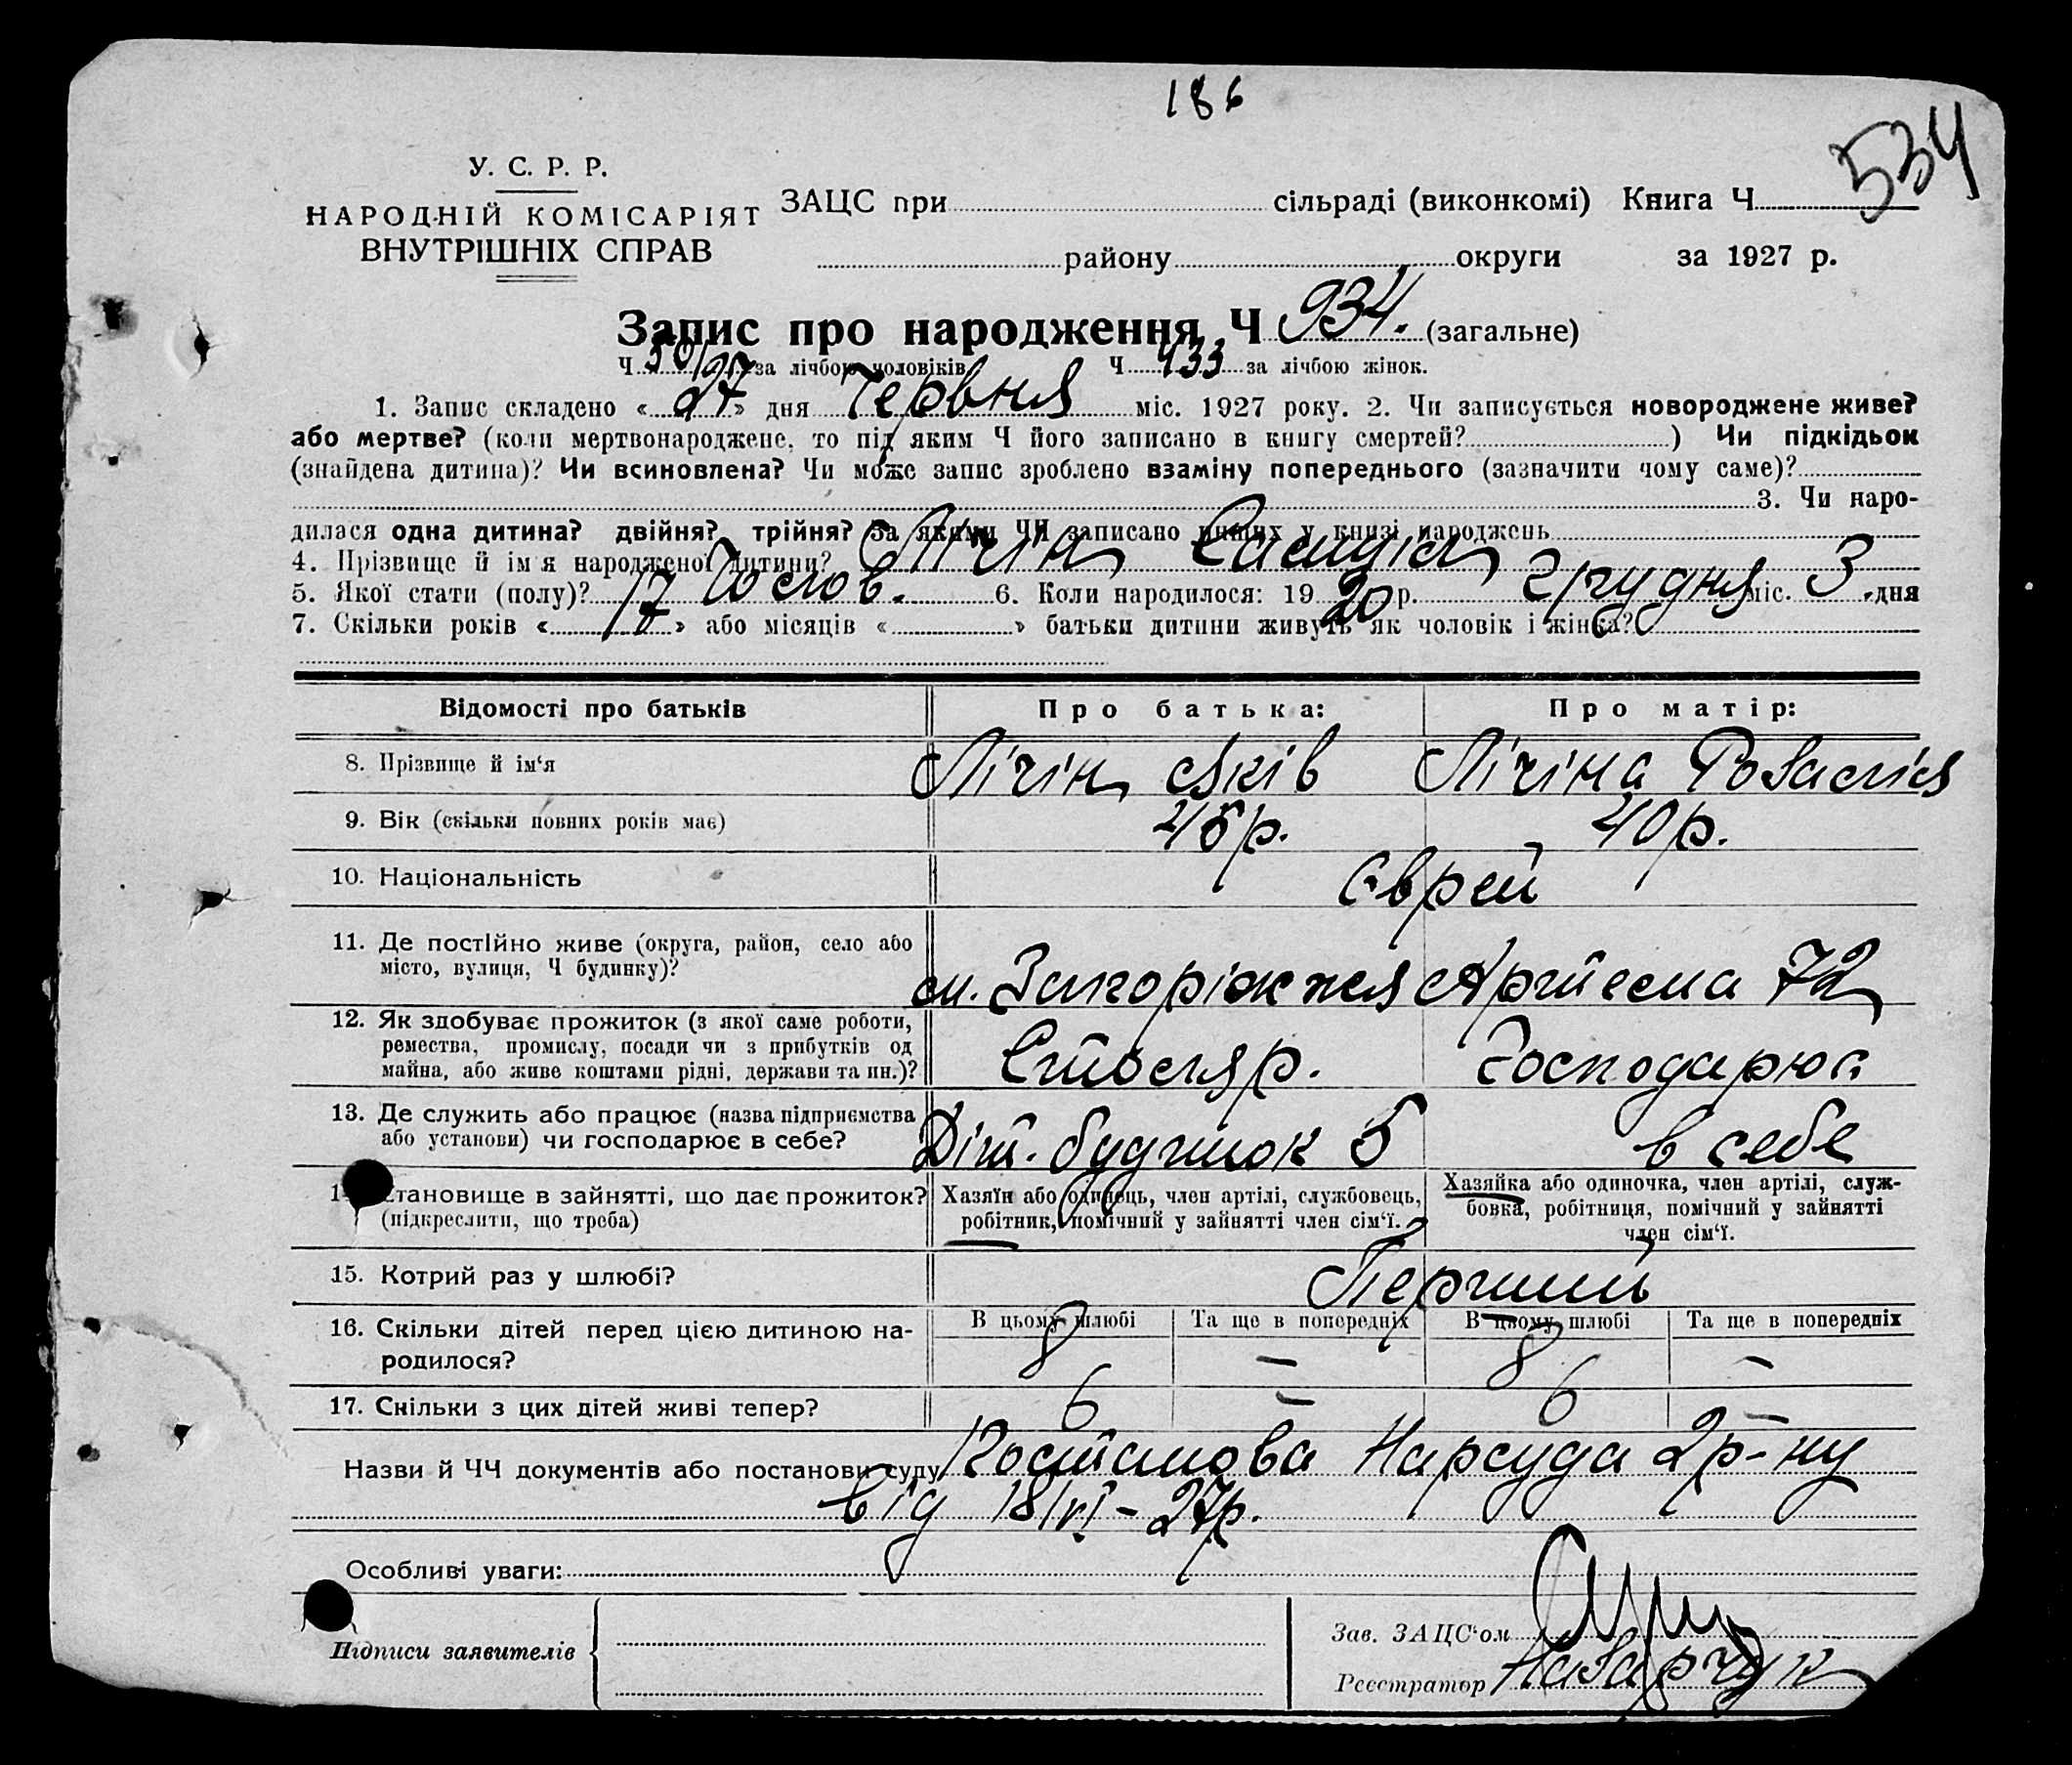 186
534
У. С. Р. Р.
НАРОДНІЙ КОМІСАРІЯТ
ВНУТРІШНІХ СПРАВ
ЗАЦС при сільраді (виконкомі) Книга Ч
району округи за 1927 р.
Запис про народження Ч 934. (загальне)
Ч за лічбою чоловіків Ч 433 за лічбою жінок.
1. Запис складено « 27 » дня Червня міс. 1927 року. 2. Чи записується новороджене живе?
або мертве? (коли мертвонароджене, то під яким Ч його записано в книгу смертей? ) Чи підкідьок
(знайдена дитина)? Чи всиновлена? Чи може запис зроблено взаміну попереднього (зазначити чому саме)?
3. Чи наро-
дилася одна дитина? двійня? трійня? За якими ЧЧ записано инших у книзі народжень
4. Прізвище й ім'я народженої дитини? Лічін
5. Якої стати (полу)? Чолов. 6. Коли народилося: 19 20 р. грудня міс. 3 дня
7. Скільки років « 17 » або місяців « » батьки дитини живуть як чоловік і жінка?
Відомості про батьків Про батька: Про матір:
8. Прізвище й ім'я Лічін Яків Лічіна Розалія
9. Вік (скільки повних років має) 45 р. 40 р.
10. Національність Єврей
11. Де постійно живе (округа, район, село або
місто, вулиця, Ч будинку)? м. Запоріжжя Артема 72
12. Як здобуває прожиток (з якої саме роботи,
ремества, промислу, посади чи з прибутків од
майна, або живе коштами рідні, держави та ин.)? Столяр. Господарює
13. Де служить або працює (назва підприємства
або установи) чи господарює в себе? Діт. будинок 5 в себе
становище в зайнятті, що дає прожиток?
(підкреслити, що треба)
Хазяїн або одинець, член артілі, службовець,
робітник, помічний у зайнятті член сім'ї.
Хазяйка або одиночка, член артілі, служ-
бовка, робітниця, помічний у зайнятті
член сім'ї.
15. Котрий раз у шлюбі? Перший
16. Скільки дітей перед цією дитиною на-
родилося?
В цьому шлюбі Та ще в попередніх В цьому шлюбі Та ще в попередніх
8 – 8 –
17. Скільки з цих дітей живі тепер? 6 – 6 –
Назви й ЧЧ документів або постанови суду Постанова Нарсуда 2 р-ну
від 18/VI – 27 р.
Особливі уваги:
Підписи заявителів
Зав. ЗАЦС'ом
Реєстратор Назарчук